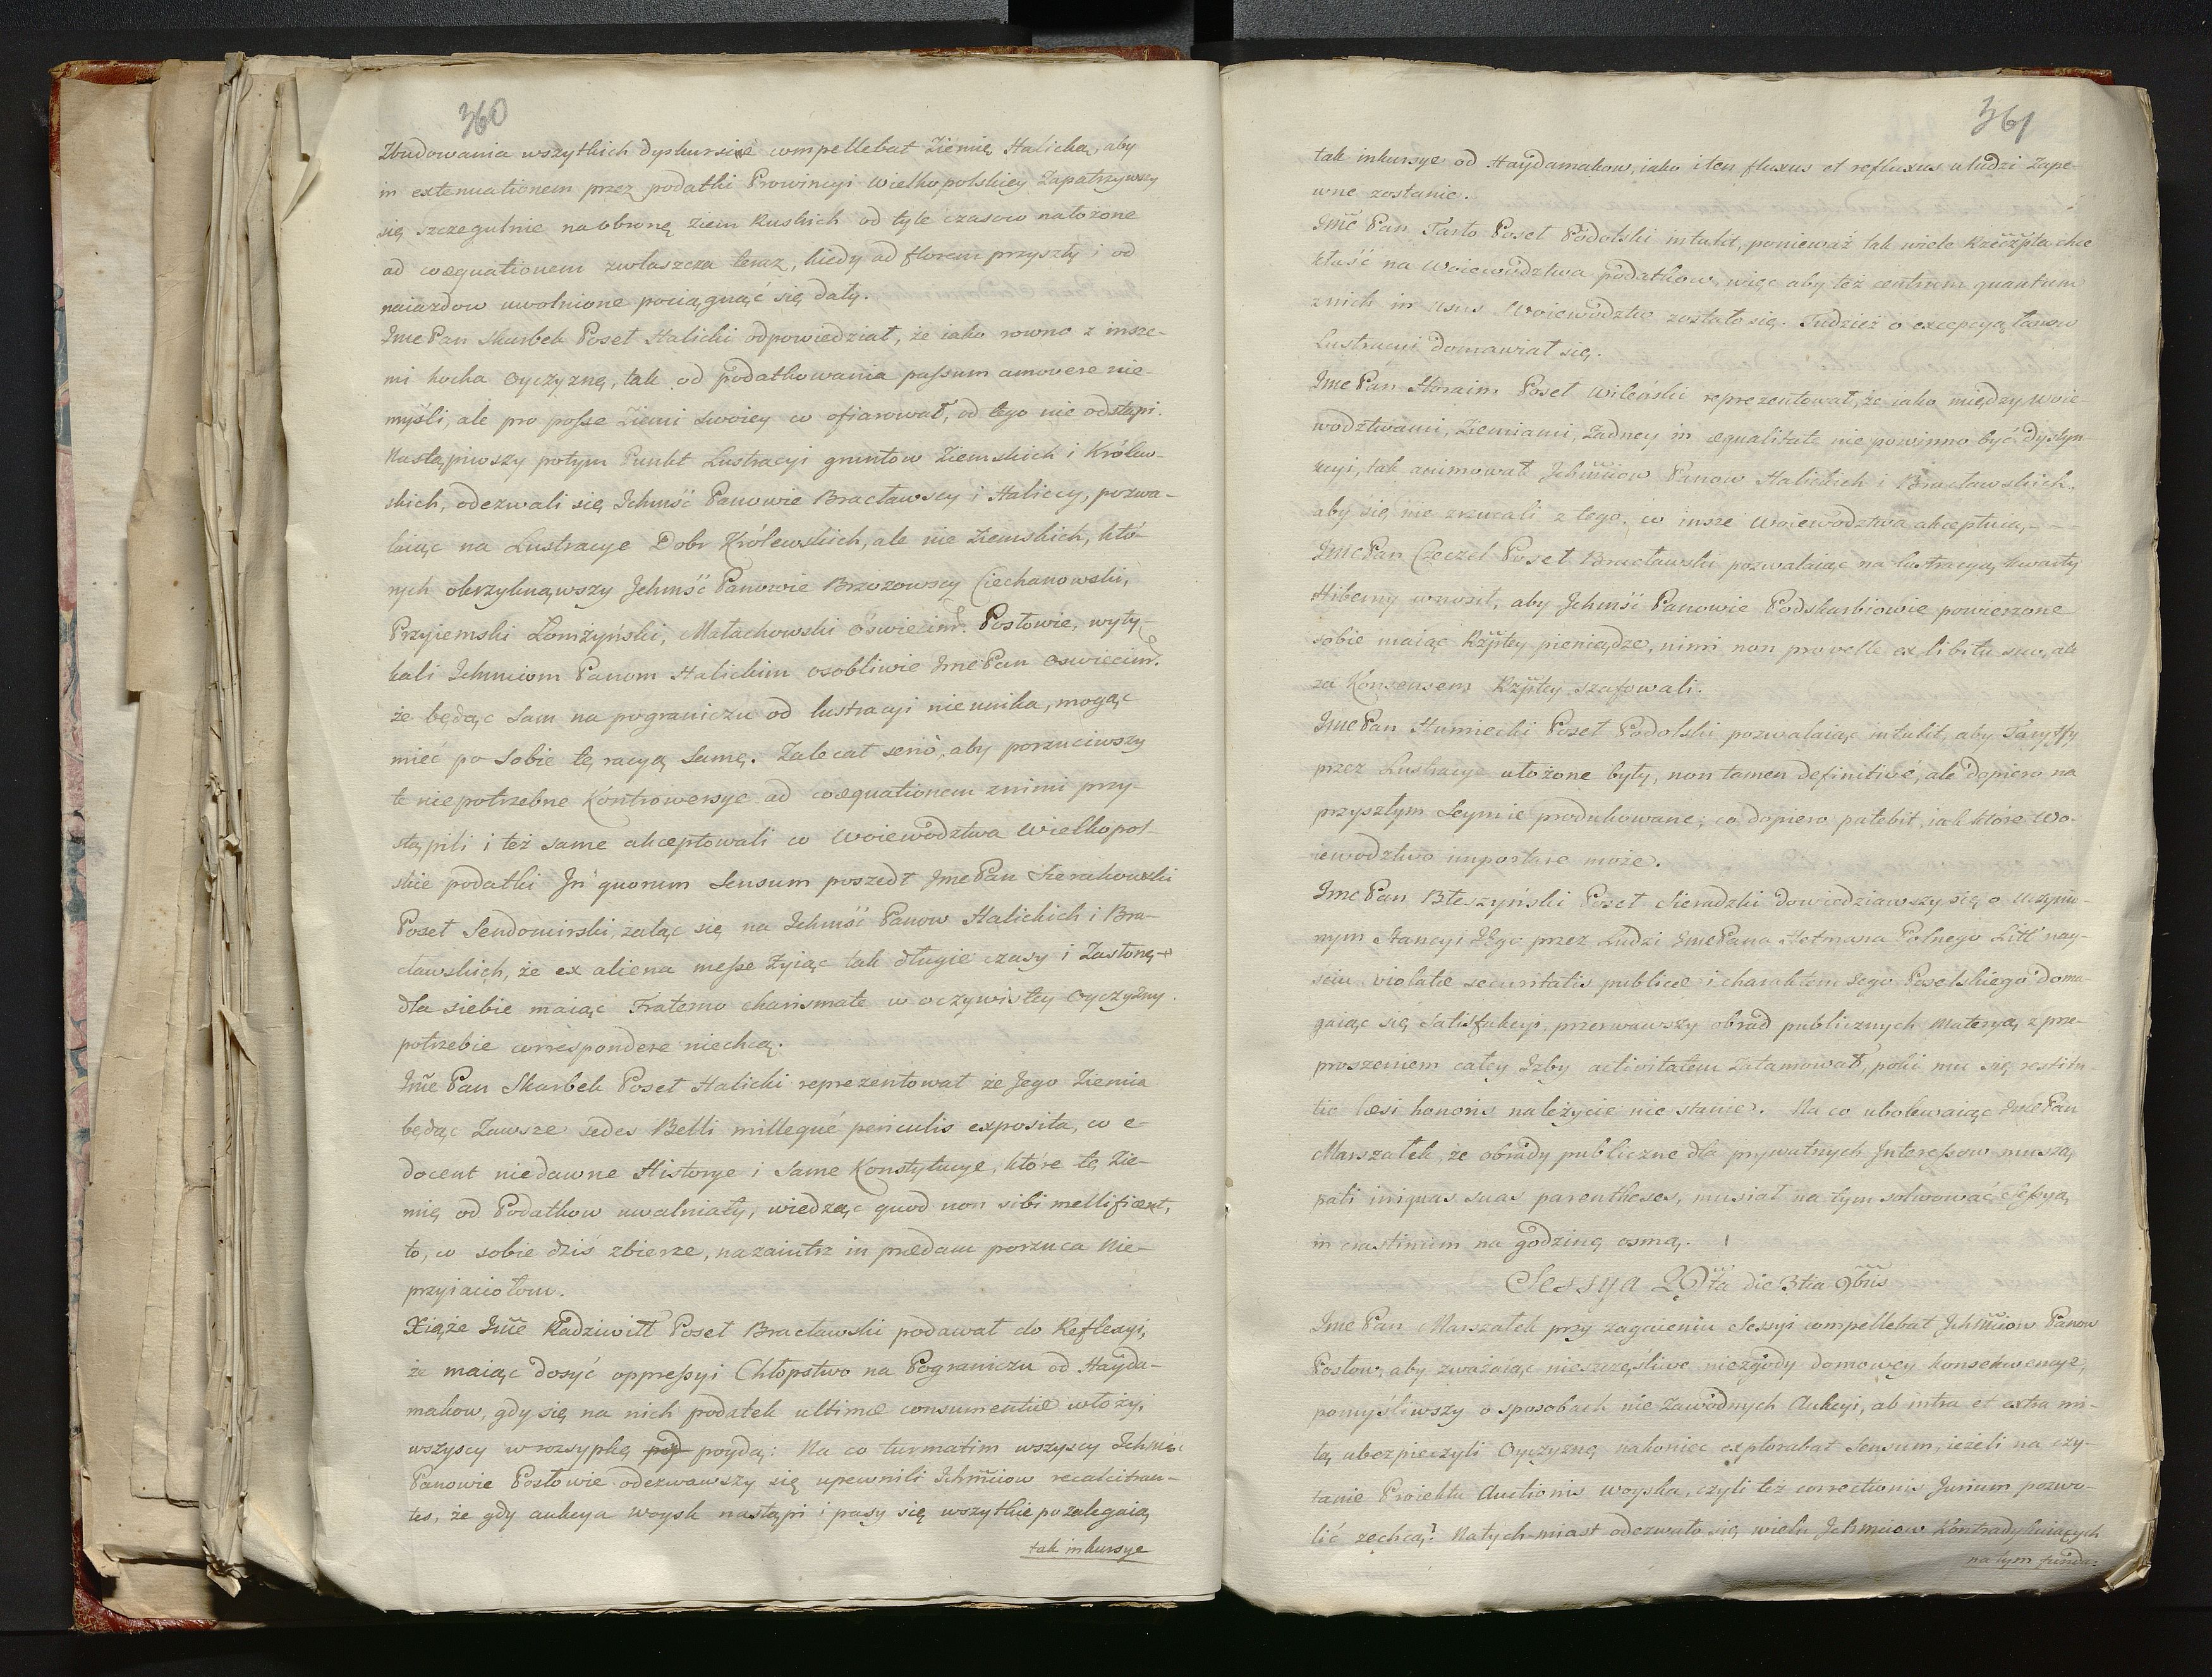 360
Zbudowania wszytkich dyskursie compellebat Ziemię Halicką, aby
in extenuationem przez podatki Prowincyi Wielkopolskiey Zapatrzywszy
się szczegulnie na obronę Ziem Ruskich od tyle czasow nałożone
ad coæquationem zwłaszcza teraz, kiedy ad florem przyszły i od
naiazdow uwolnione pociągnąć się dały.
Jmc Pan Skarbek Poseł Halicki odpowiedział, że iako rowno z insze-
mi kocha Oyczyznę, tak od podatkowania passum amovere nie-
myśli, ale pro posse Ziemi Swoiey co ofiarował, od tego nie odstąpi.
Nastąpiwszy potym Punkt Lustracyi gruntow Ziemskich i Królew-
skich, odezwali się Ichmść Panowie Bracławscy i Haliccy, pozwa-
laiąc na Lustracye Dobr Królewskich, ale nie Ziemskich, któ-
rych okrzyknąwszy Jchmść Panowie Brzozowscy Ciechanowski,
Przyiemski Łomżyński, Małachowski Oświecim. Posłowie, wyty-
kali Ichmciom Panom Halickim osobliwie Jmc Pan Oswiecim.
że będąc Sam na pograniczu od lustracyi nieunika, mogąc
mieć po Sobie tę racyą Samę. Zalecał serio, aby porzuciwszy
te niepotrzebne Kontrowersye ad coæquationem z nimi przy-
stąpili i też same akceptowali co Woiewództwa Wielkopol-
skie podatki Jn quorum Sensum poszedł Jmc Pan Sierakowski
Poseł Sendomirski, żaląc się na Jchmść Panow Halickich i Bra-
cławskich, że ex aliena messe Żyiąc tak długie czasy i Zasłonę
dla siebie maiąc Fraterno charismate w oczywistey Oyczyzny
potrzebie correspondere niechcą.
Jmc Pan Skarbek Poseł Halicki reprezentował że Jego Ziemia
będąc Zawsze sedes Belli milleque periculis exposita, co e-
docent niedawne Historye i Same Konstytucye, które tę Zie-
mię od Podatkow uwalniały, wiedząc quod non sibi mellificent,
to, co sobie dziś zbierze, nazaiutrz in prædam porzuca Nie-
przyiaciołom.
Xiąże Jmc Radziwiłł Poseł Bracławski podawał do Reflexyi,
że maiąc dosyć oppressyi Chłopstwo na Pograniczu od Hayda-
makow, gdy się na nich podatek ultimæ consumentiæ włoży,
wszyscy w rozsypkę poydą: Na co turmatim wszyscy Jchmść
Panowie Posłowie odezwawszy się upewnili Jchmciow recalcitran-
tes, że gdy aukcya Woysk nastąpi i pasy się wszytkie pozalegaią
tak inkursye
361
tak inkursye od Haydamakow, iako i ten fluxus et refluxus u ludzi Zape-
wne zostanie.
Jmć Pan Tarło Poseł Podolski intulit, ponieważ tak wiele Rzeczpta chce
kłaść na Woiewództwa podatkow, więc aby też centrum quantum
z nich in usus Woiewództw zostało się. Tudzież o excepcyą łanow
Lustracyi domawiał się.
Jmc Pan Horaim Poseł Wileński reprezentował, że iako między Woie-
wodztwami, Ziemiami, Żadney in æqualitate nie powinno być dystyn-
kcyi, tak animował Jchmciow Panow Halickich i Bracławskich,
aby się nie zrzucali z tego, co insze Woiewództwa akceptuią, - -
Jmc Pan Czeczel Poseł Bracławski pozwalaiąc na lustracyą kwarty
Hiberny wnosił, aby Jchmść Panowie Podskarbiowie powierzone
sobie maiąc Rzptey pieniądze, nimi non pro velle ex libitu suo, ale
za Konsensem Rzptey szafowali.
Jmc Pan Humiecki Poseł Podolski pozwalaiąc intulit, aby Taryffy
przez Lustracye ułożone były, non tamen definitivè, ale dopiero na
przyszłym Seymie produkowane; co dopiero patebit, iak które Wo-
iewodztwo importare może.
Jmc Pan Błeszyński Poseł Sieradzki dowiedziawszy się o uczynio-
nym Stancyi Jego przez Ludzi Jmc Pana Hetmana Polnego Litt nay-
sciu violatæ securitatis publicæ i charakteru Jego Poselskiego doma-
gaiąc się Satisfakcyi, przerwawszy obrad publicznych Materyą, z prze-
proszeniem całey Izby activitatem Zatamował, poki mu się restitu-
tio læsi honoris należycie nie stanie. Na co ubolewaiąc Jmc Pan
Marszałek, że obrady publiczne dla prywatnych Interessow muszą
pati iniquas suas parentheses, musiał na tym solwować Sessyą
in crastinum na godzinę osmą.
Sessya 29ta die 3tia 9bris
Jmc Pan Marszałek przy zagaieniu Sessyi compellebat Jchmciow Panow
Posłow, aby zważaiąc nieszczęśliwe niezgody domowey konsekwencye,
pomyśliwszy o sposobach nie Zawodnych Aukcyi, ab intra et extra mi-
łą ubezpieczyli Oyczyznę nakoniec explorabat Sensum, ieżeli na czy-
tanie Proiektu Auctionis woyska, czyli też correctionis Jurium pozwo-
lić zechcą? Natychmiast odezwało się wielu Jchmciow Kontradykuiących
na tym funda: